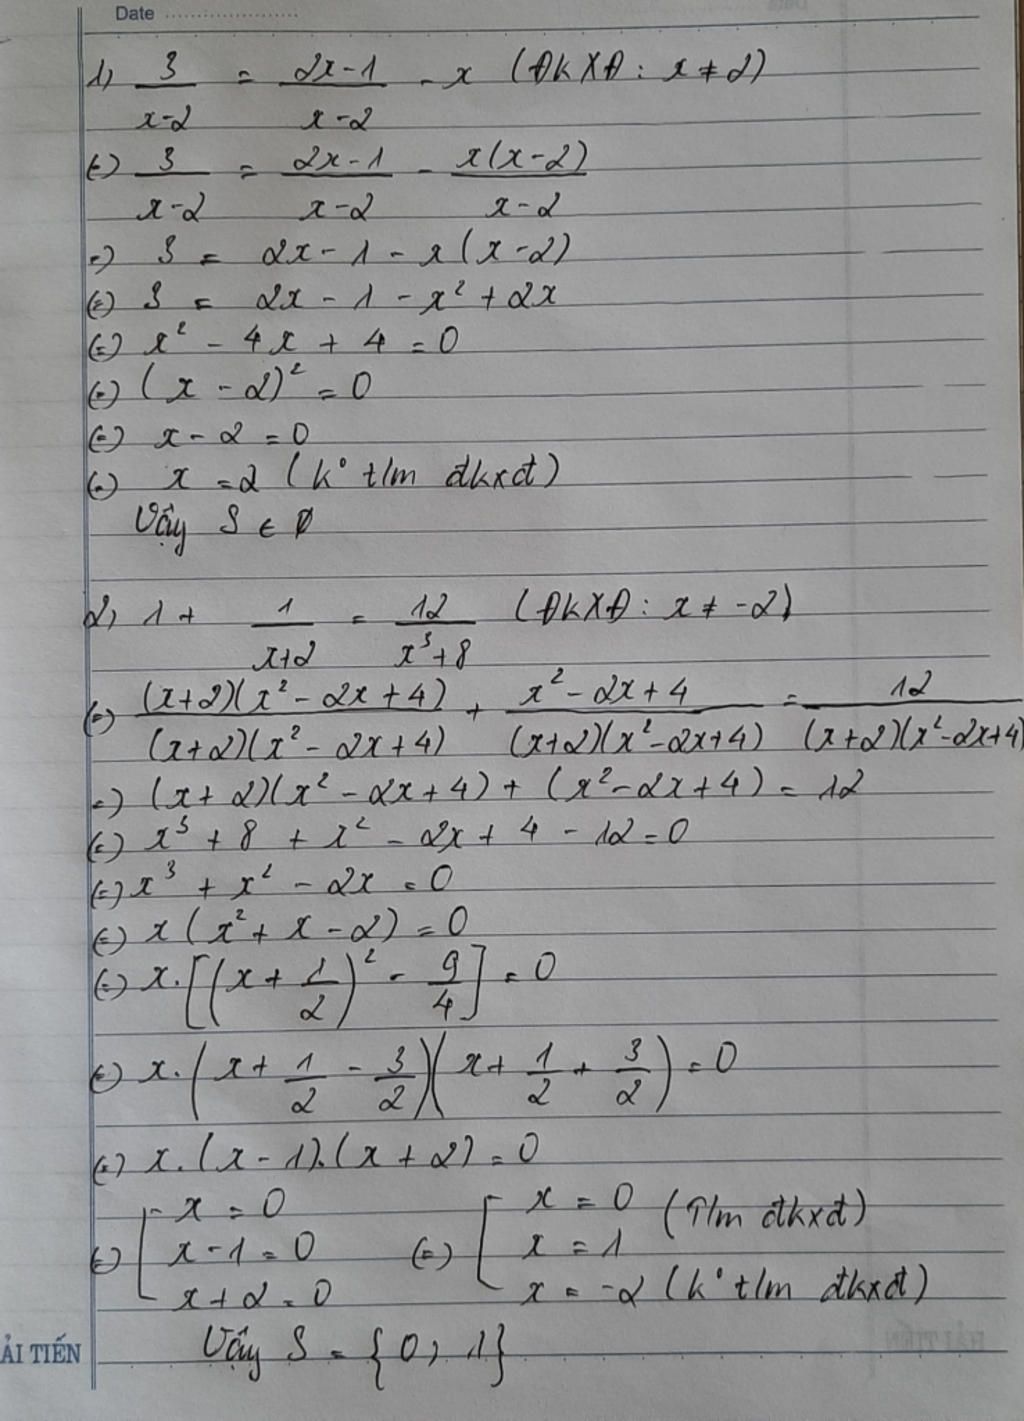 Date ........................
1, 3/(x-2) = (2x-1)/(x-2) - x (ĐKXĐ: x ≠ 2)
(=) 3/(x-2) = (2x-1)/(x-2) - x(x-2)/(x-2)
=) 3 = 2x - 1 - x(x-2)
(=) 3 = 2x - 1 - x² + 2x
(=) x² - 4x + 4 = 0
(=) (x - 2)² = 0
(=) x - 2 = 0
(=) x = 2 (k° t/m đkxđ)
Vậy S ∈ ∅
2, 1 + 1/(x+2) = 12/(x³+8) (ĐKXĐ: x ≠ -2)
(=) (x+2)(x² - 2x + 4)/(x+2)(x² - 2x + 4) + (x² - 2x + 4)/(x+2)(x² - 2x + 4) = 12/(x+2)(x² - 2x + 4)
=) (x + 2)(x² - 2x + 4) + (x² - 2x + 4) = 12
(=) x³ + 8 + x² - 2x + 4 - 12 = 0
(=) x³ + x² - 2x = 0
(=) x(x² + x - 2) = 0
(=) x.[(x + 1/2)² - 9/4] = 0
(=) x.(x + 1/2 - 3/2)(x + 1/2 + 3/2) = 0
(=) x.(x - 1).(x + 2) = 0
(=) [ x = 0 (=) [ x = 0 (T/m đkxđ)
x - 1 = 0 x = 1
x + 2 = 0 x = -2 (k° t/m đkxđ)
Vậy S = {0; 1}
ẢI TIẾN